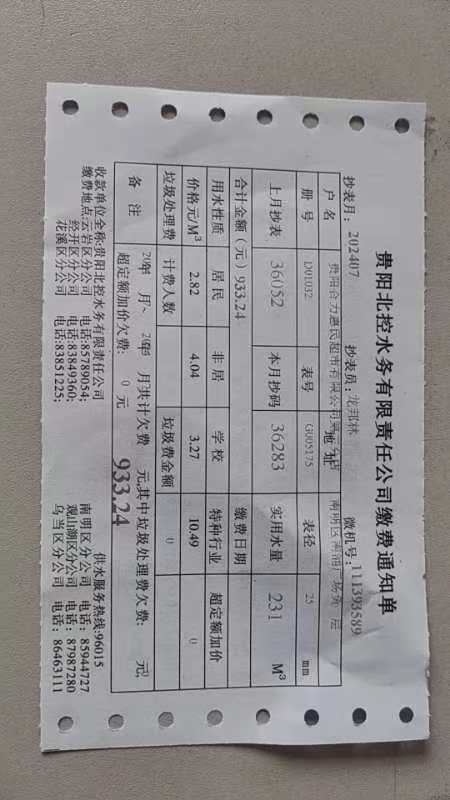 贵阳北控水务有限责任公司缴费通知单
抄表月：202407 抄表员：龙邦林 微机号：111393589
户名 贵阳合力惠民超市有限公司 地址 南明区
册号 D01032 表号 GU05175 表径 25 mm
上月抄表 36052 本月抄码 36283 实用水量 231 M³
合计金额（元）933.24 缴费日期
用水性质 居民 非居 学校 特种行业 超定额加价
价格元/M³ 2.82 4.04 3.27 10.49 0
垃圾处理费 计费人数 垃圾费金额 0
备注 月～ 月共计欠费： 933.24 元,其中垃圾处理费欠费： 元,
超定额加价欠费： 0 元
供水服务热线:96015
收款单位全称:贵阳北控水务有限责任公司
缴费地点:云岩区分公司 电话:85789054; 南明区分公司 电话：85944727
经开区分公司 电话:83849360; 观山湖区分公司 电话：87987280
花溪区分公司 电话:83851225; 乌当区分公司 电话：86463111